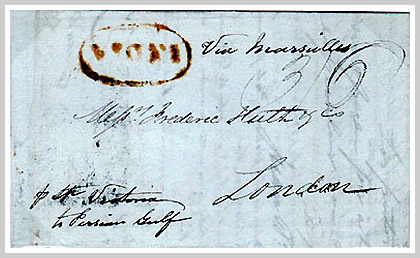 INDIA
Via Marseilles
3/6
Messrs Frederic Huth & Co
London
p Str Victoria
to Persian Gulf